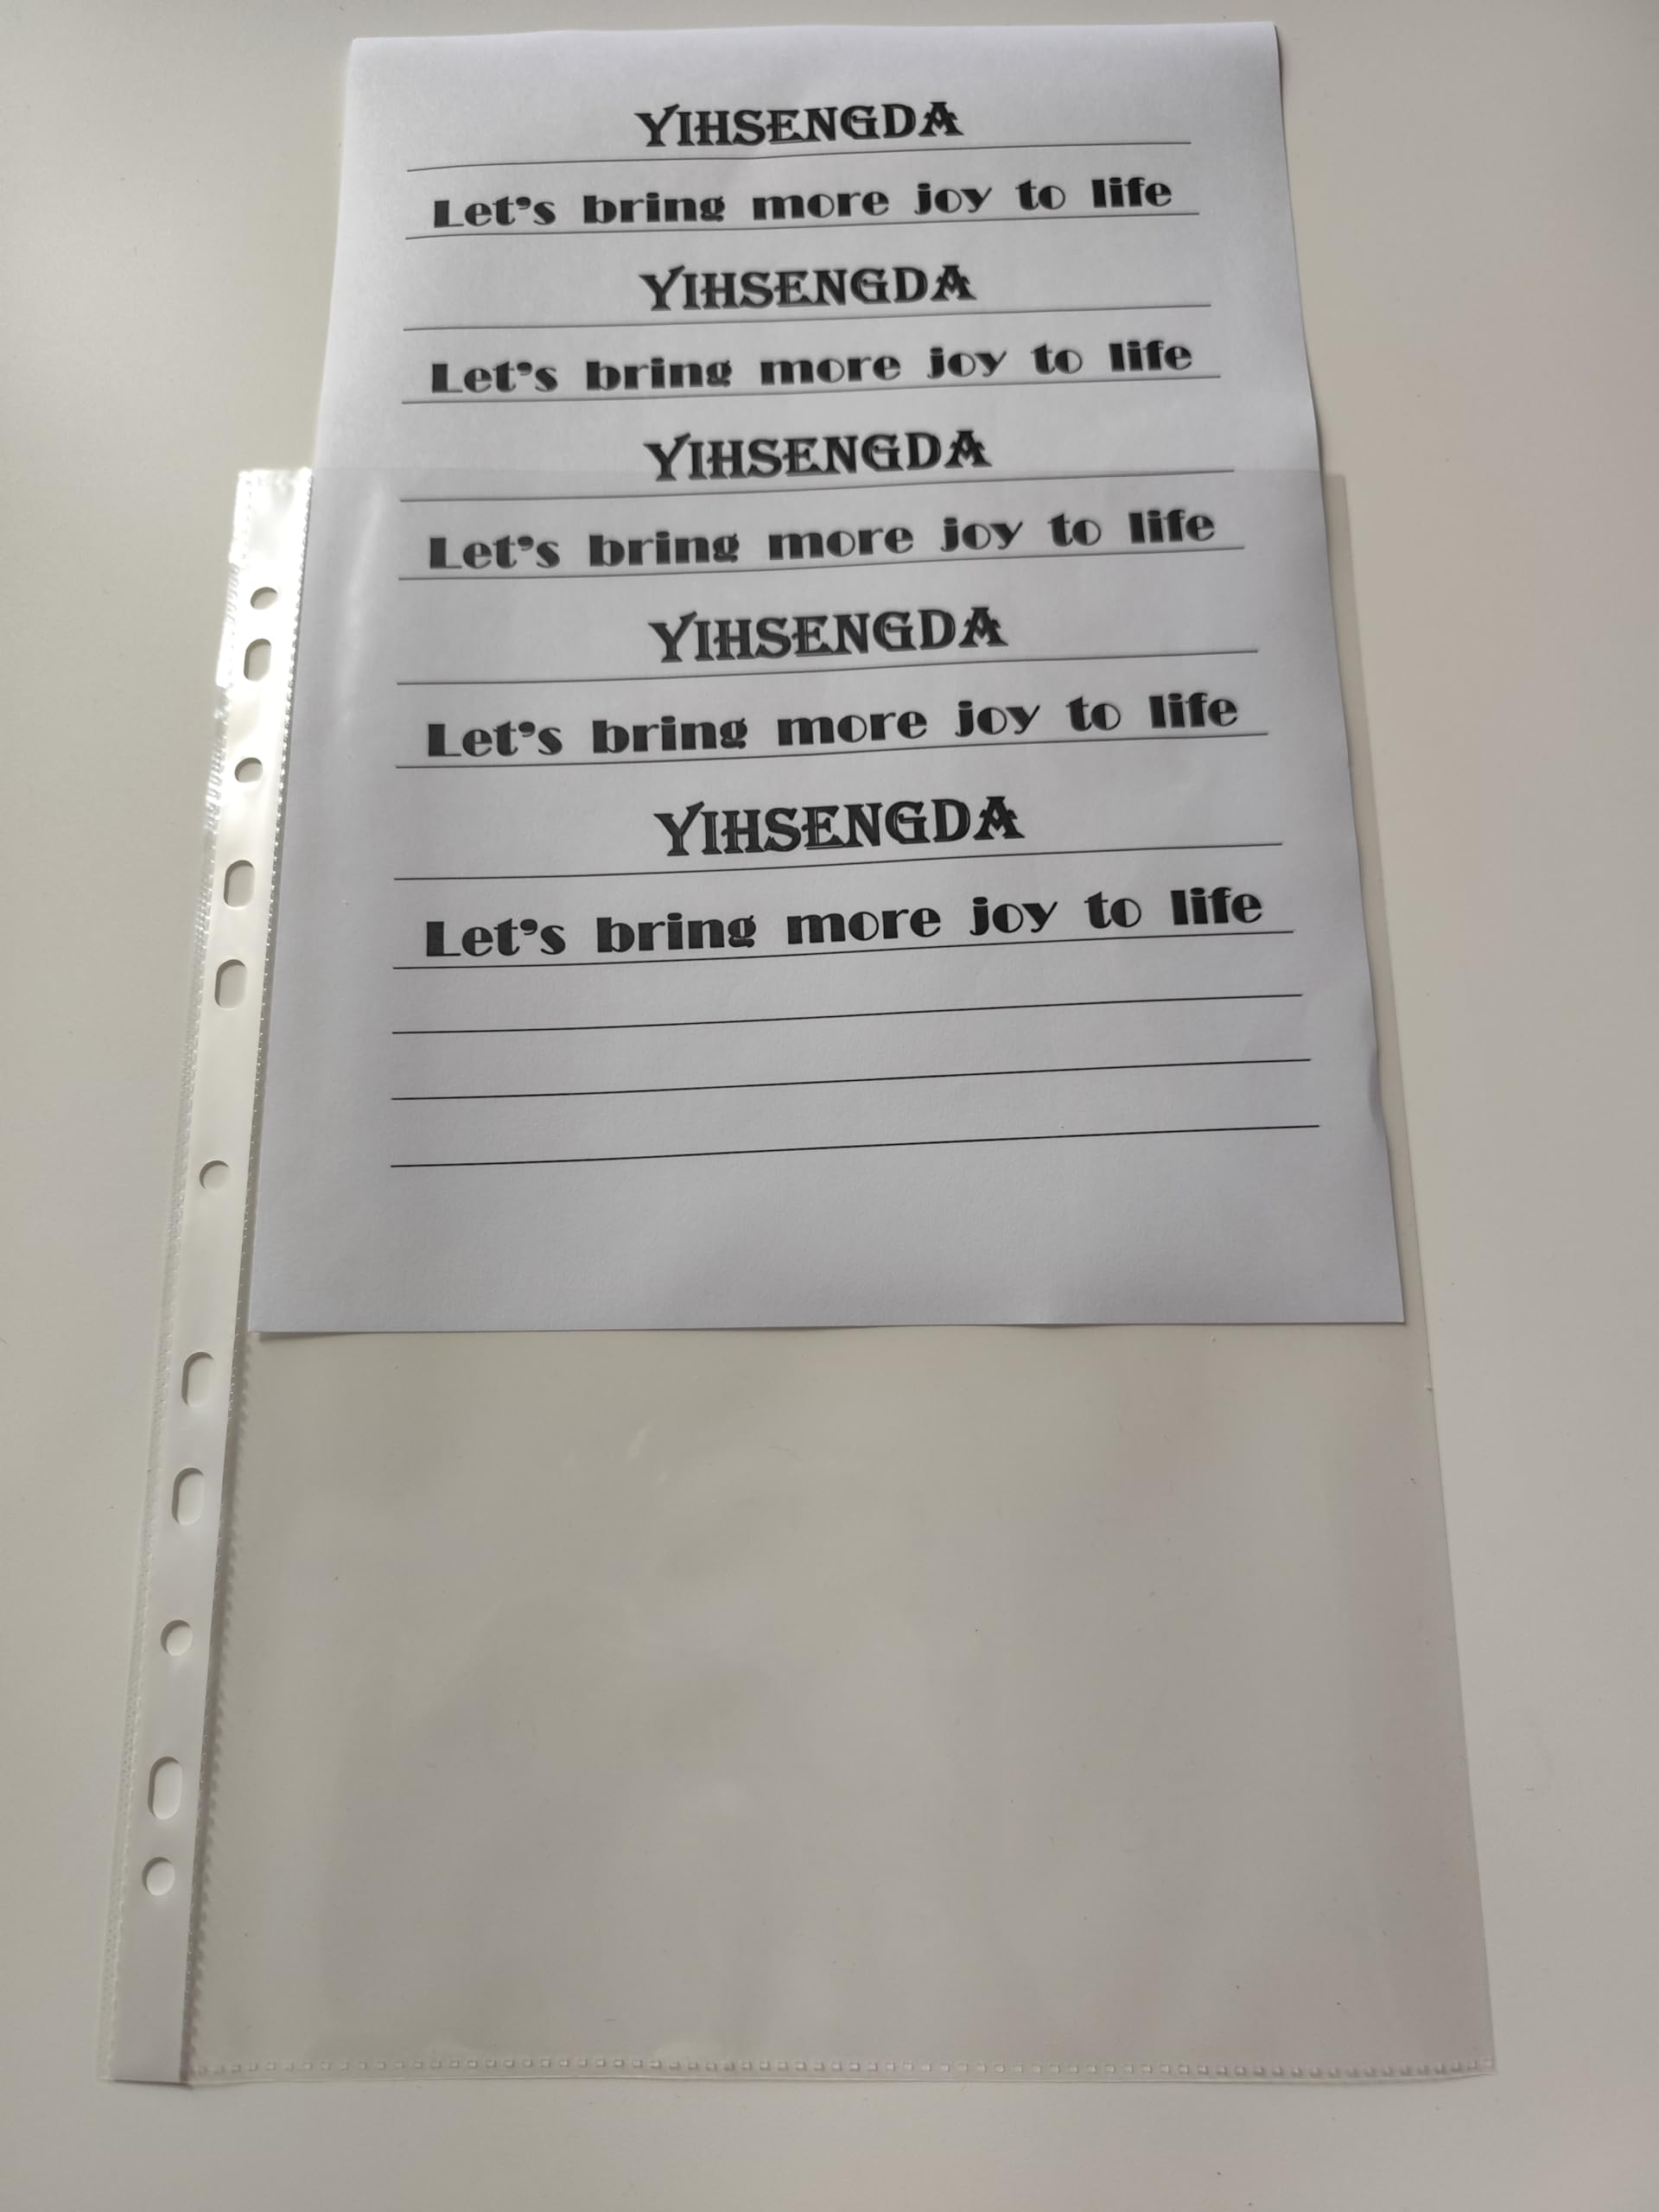 YIHSENGDA
Let's bring more joy to life
YIHSENGDA
Let's bring more joy to life
YIHSENGDA
Let's bring more joy to life
YIHSENGDA
Let's bring more joy to life
YIHSENGDA
Let's bring more joy to life